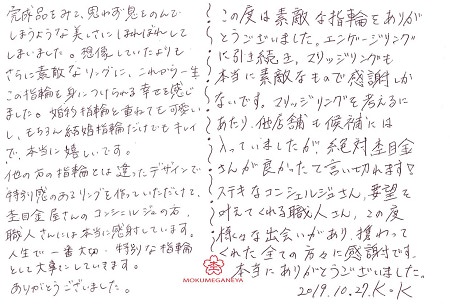 完成品をみて、思わず息をのんで
しまうような美しさにほれぼれして
しまいました。想像していたよりも
さらに素敵なリングに、これから一生
この指輪を身につけられる幸せを感じ
ました。婚約指輪と重ねても可愛い
し、もちろん結婚指輪だけでもキレイ
で、本当に嬉しいです。
他の方の指輪とは違ったデザインで
特別感のあるリングを作っていただけて、
杢目金屋さんのコンシェルジュの方、
職人さんには本当に感謝しています。
人生で一番大切・特別な指輪
として大事にしていきます。
ありがとうございました。
この度は素敵な指輪をありが
とうございました。エンゲージリング
に引き続き、マリッジリングも
本当に素敵なもので感謝しか
ないです。マリッジリングを考えるに
あたり、他店舗も候補には
入っていましたが、絶対杢目金
さんが良かったて言い切れます!
ステキなコンシェルジュさん、要望を
叶えてくれる職人さん、この度
様々な出会いがあり、携わって
くれた全ての方々に感謝です。
本当にありがとうございました。
2019.10.27 K.K
MOKUMEGANEYA